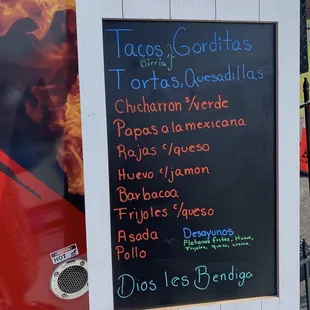 Tacos, Gorditas
Birria y
Tortas, Quesadillas
Chicharron s/verde
Papas a la mexicana
Rajas c/queso
Huevo c/jamon
Barbacoa
Frijoles c/queso
Asada
Desayunos
Platanos fritos, Huevo,
Frijoles, queso, crema.
Pollo
Dios les Bendiga
HOT